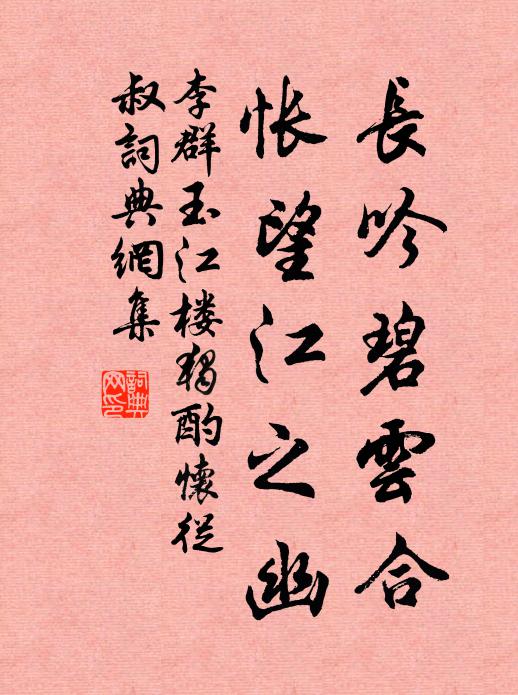 長吟碧雲合
悵望江之幽
李群玉江楼獨酌懷從
叔詞典網集
詞典
网印